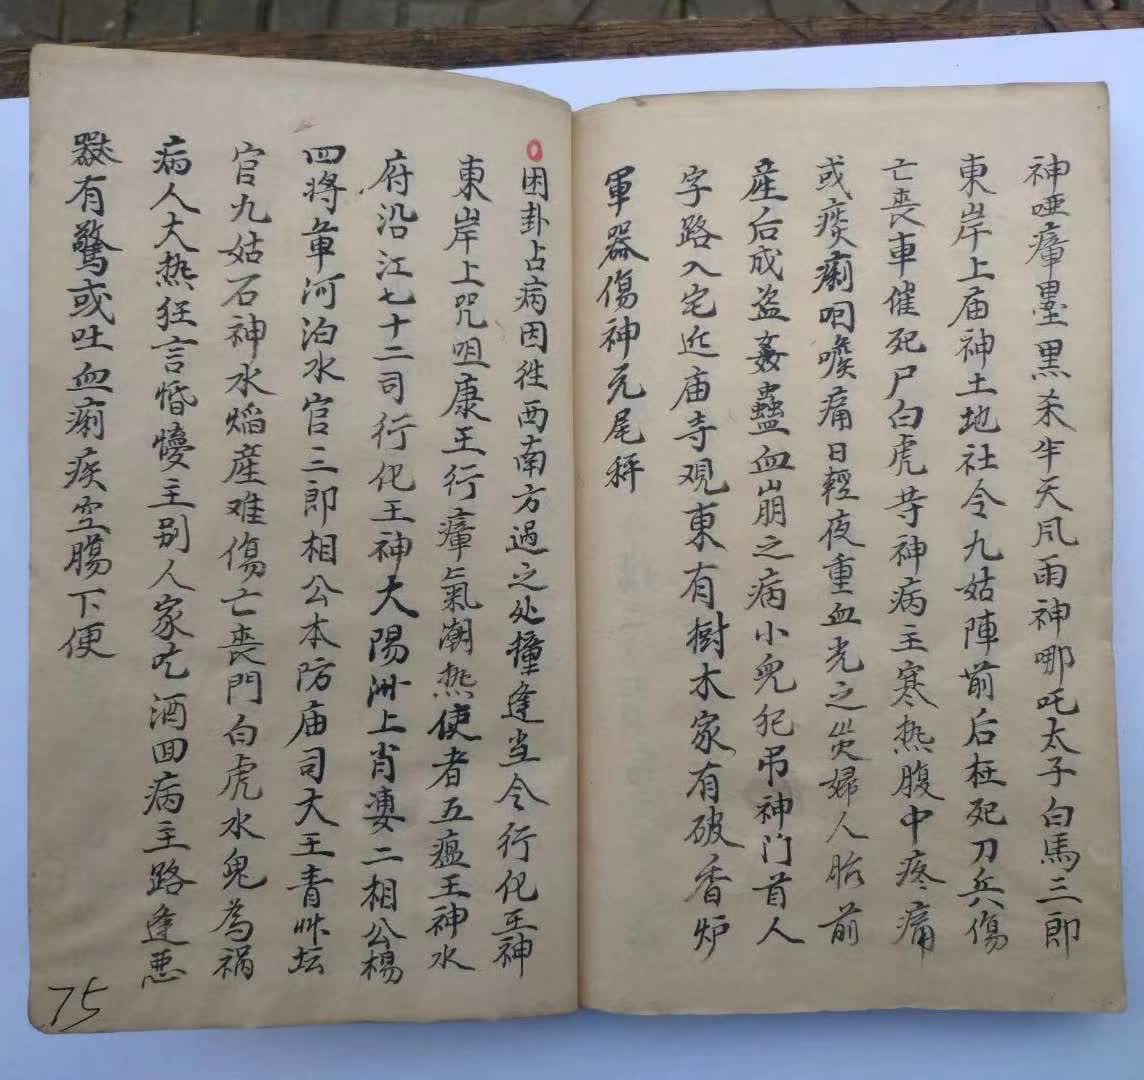 神哑瘴墨黑杀牛天風雨神哪吒太子白馬三郎
東岸上庙神土地社令九姑陣前后枉死刀兵傷
亡喪車催死尸白虎寺神病主寒热腹中疼痛
或痰痢咽喉痛日輕夜重血光之灾婦人胎前
産后成盗姦蠱血崩之病小兒犯吊神门首人
字路入宅近庙寺观東有樹木家有破香炉
軍器傷神元尾秤
困卦占病因往西南方過之处撞逢当令行化王神
東岸上咒咀康王行瘴氣潮热使者五瘟王神水
府沿江七十二司行化王神大陽洲上肖婁二相公楊
四将軍河泊水官三郎相公本防庙司大王青草坛
官九姑石神水熖産难傷亡喪門白虎水鬼為祸
病人大热狂言惛懮主别人家吃酒回病主路逢恶
獣有驚或吐血痢疾空腸下便
75